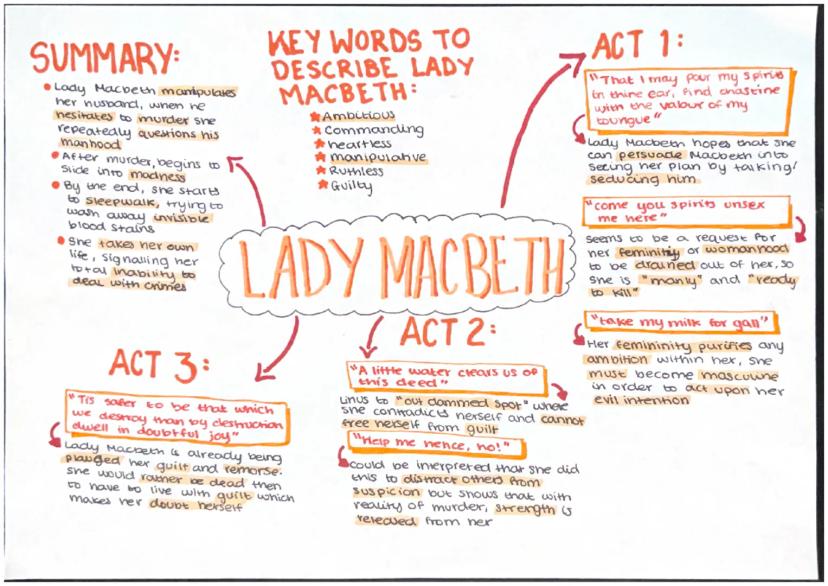 SUMMARY:
Lady Macbeth manipulates
her husband, when he
hesitates to murder she
repeatedly questions his
manhood
After murder, begins to
slide into madness
By the end, she starts
to sleepwalk, trying to
wash away invisible
blood stains
She takes her own
life, signalling her
total inability to
deal with crimes
KEY WORDS TO
DESCRIBE LADY
MACBETH:
Ambitious
Commanding
heartless
manipulative
Ruthless
Guilty
ACT 1:
"That I may pour my spirits
in thine ear, find chastine
with the valour of my
toungue"
Lady Macbeth hopes that she
can persuade Macbeth into
seeing her plan by talking/
seducing him
"come you spirits unsex
me here"
Seems to be a request for
her femininity or womanhood
to be drained out of her, so
she is "manly" and "ready
to kill"
"take my milk for gall"
Her femininity purifies any
ambition within her, she
must become masculine
in order to act upon her
evil intention
LADY MACBETH
ACT 2:
"A little water clears us of
this deed"
Links to "out dammed spot" where
she contradicts herself and cannot
free herself from guilt
"Help me hence, ho!"
Could be inerpreted that she did
this to distract others from
suspicion but shows that with
reality of murder, strength is
released from her
ACT 3:
"Tis safer to be that which
we destroy than by destruction
dwell in doubtful joy"
Lady Macbeth is already being
plauged her guilt and remorse.
she would rather be dead then
to have to live with guilt which
makes her doubt herself